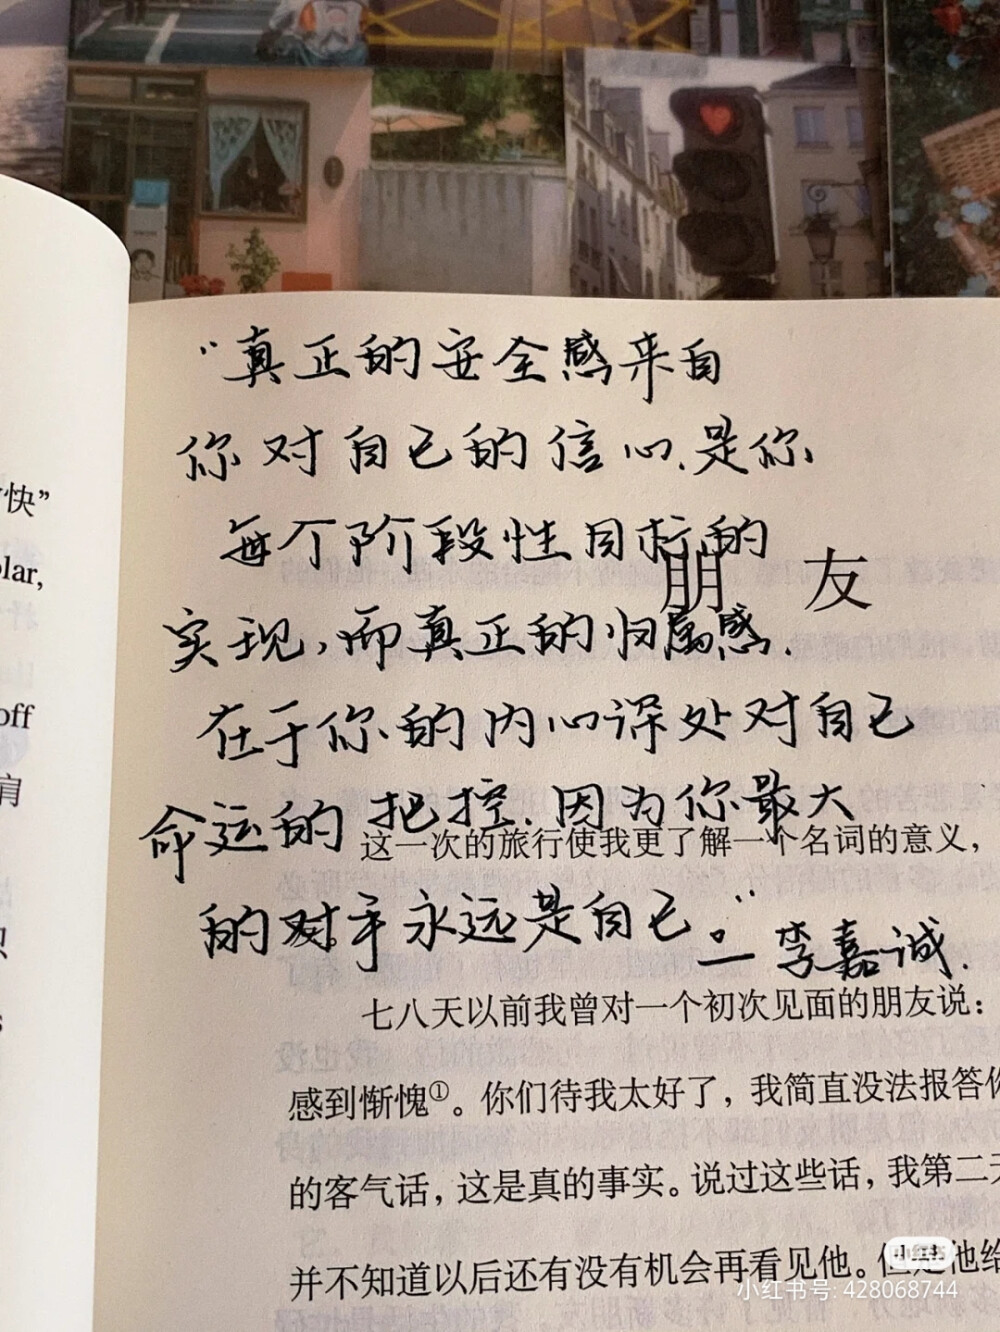 快”
olar,
off
肩
“真正的安全感来自
你对自己的信心.是你
每个阶段性目标的
朋 友
实现,而真正的归属感.
在于你的内心深处对自己
命运的把控.因为你最大
这一次的旅行使我更了解一个名词的意义，
的对手永远是自己。”
— 李嘉诚.
七八天以前我曾对一个初次见面的朋友说：
感到惭愧①。你们待我太好了，我简直没法报答你
的客气话，这是真的事实。说过这些话，我第二天
并不知道以后还有没有机会再看见他。但是他给
小红书
小红书号: 428068744